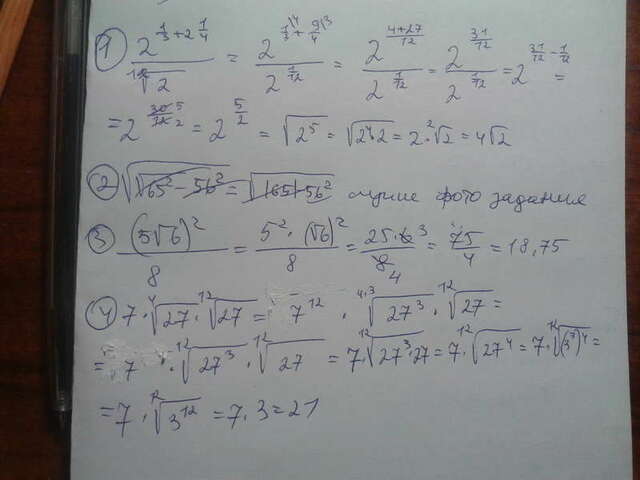 1) 2^(1/3+2 1/4) / ¹²√2 = 2^(1/3\4 + 9/4\3) / 2^(1/12) = 2^((4+27)/12) / 2^(1/12) = 2^(31/12) / 2^(1/12) = 2^(31/12 - 1/12) =
= 2^(30/12 5/2) = 2^(5/2) = √2⁵ = √2⁴·2 = 2·²√2 = 4√2
2) √√65² - 56² = √165 56² лучше фото задания
3) (5√6)² / 8 = 5²·(√6)² / 8 = 25·6 3 / 8 4 = 75/4 = 18,75
4) 7·⁴√27·¹²√27 = 7 ¹² · ⁴·³√27³ · ¹²√27 =
= 7 · ¹²√27³ · ¹²√27 = 7·¹²√27³·27 = 7·¹²√27⁴ = 7·¹²√(3³)⁴ =
= 7·¹²√3¹² = 7·3 = 21